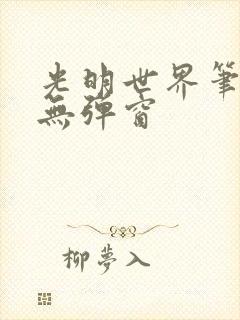 光明世界筆
無彈窗
柳夢入